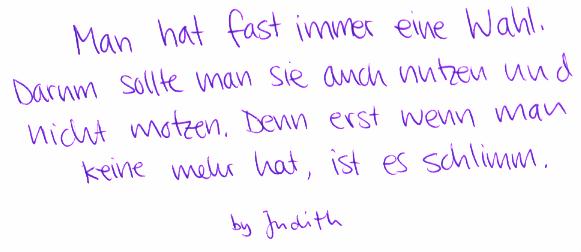 Man hat fast immer eine Wahl.
Darum sollte man sie auch nutzen und
nicht motzen. Denn erst wenn man
keine mehr hat, ist es schlimm.
by Judith